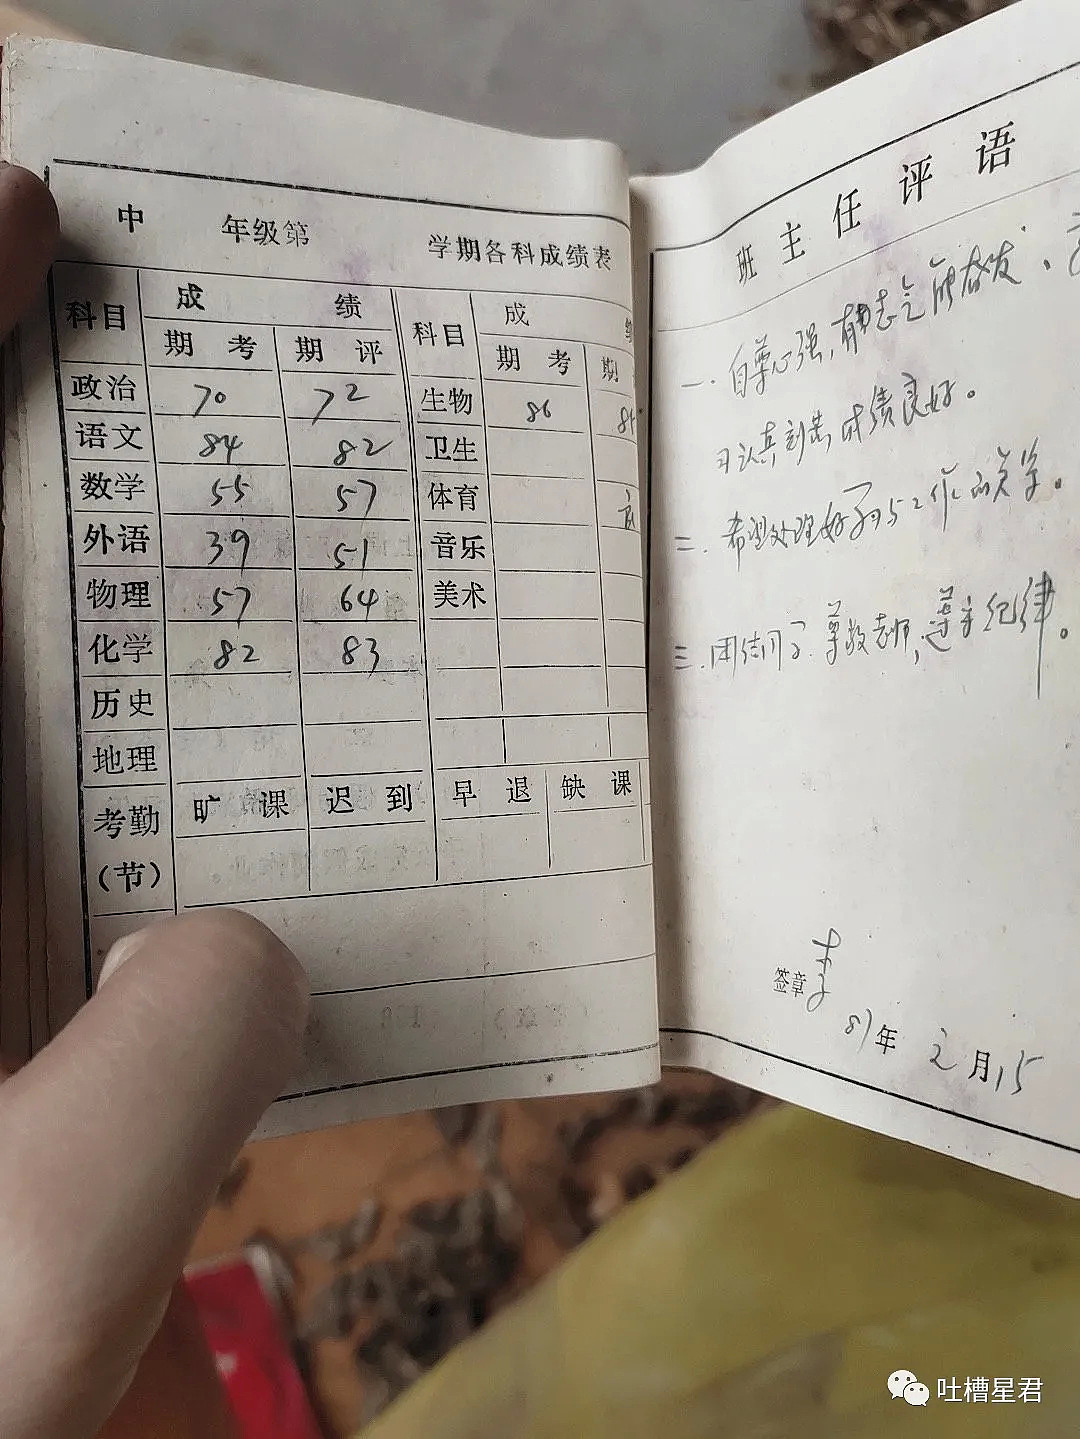 中 年级第 学期各科成绩表
科目 成 绩 科目 成
期 考 期 评 期 考 期
政治 70 72 生物 86
语文 84 82 卫生
数学 55 57 体育
外语 39 51 音乐
物理 57 64 美术
化学 82 83
历史
地理
考勤 旷 课 迟 到 早 退 缺 课
(节)
班主任评语
一.自尊心强,有志气能奋发、
习认真刻苦成绩良好。
二.希望处理好学习与工作的关学。
三.团结同学尊敬老师,遵守纪律。
签章李
81年2月15
吐槽星君